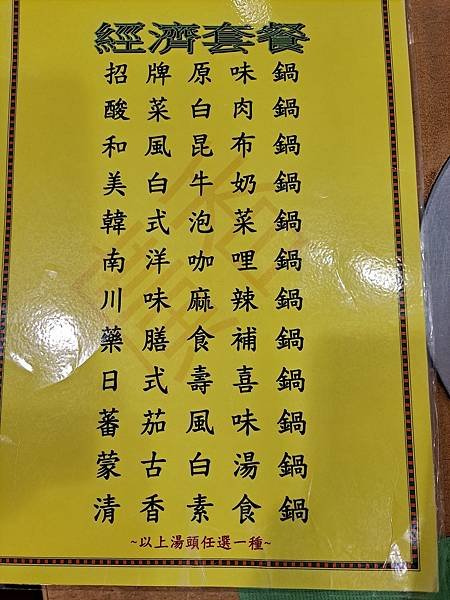 經濟套餐
招牌原味鍋
酸菜白肉鍋
和風昆布鍋
美白牛奶鍋
韓式泡菜鍋
南洋咖哩鍋
川味麻辣鍋
藥膳食補鍋
日式壽喜鍋
蕃茄風味鍋
蒙古白湯鍋
清香素食鍋
~以上湯頭任選一種~